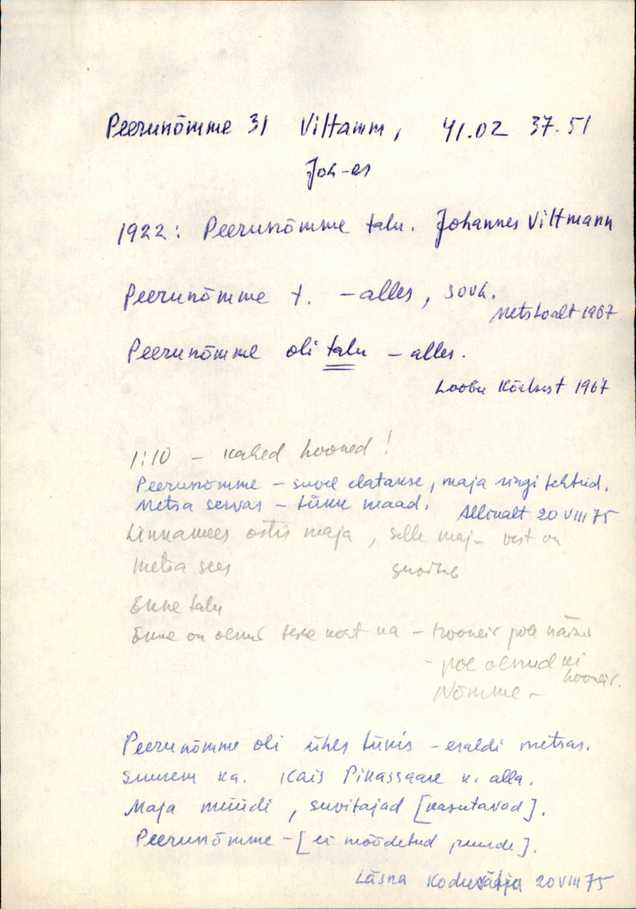 Peerunõmme 31 Viltamm, 41.02 37.51
Joh-es
1922: Peerunõmme talu. Johannes Viltmann
Peerunõmme t. – alles, sovh.
Metstoalt 1967
Peerunõmme oli talu – alles.
Loobu Kõrtsist 1967
1:10 – kahed hooned!
Peerunõmme – suvel elatakse, maja ringi tehtud.
Metsa servas – tükk maad. Allinalt 20 VIII 75
Linnamees ostis maja, selle maj– vist on
metsa sees
Enne talu
Enne on olnud teine koht ka – hooneid pole näinud
– pole olnud ei
hooneid.
Nõmme –
Peerunõmme oli ühes tükis – eraldi metsas.
Suurem ka. Käis Pikassaare k. alla.
Maja müüdi, suvitajad [kasutavad].
Peerunõmme – [ei mõõdetud juurde].
Läsna 20 VIII 75